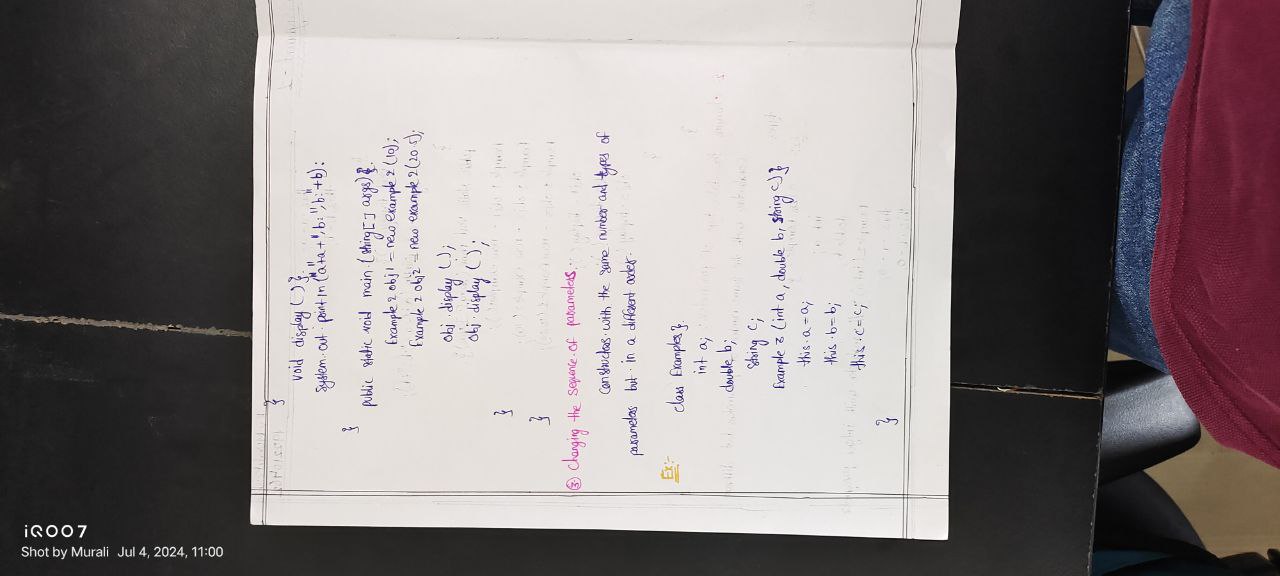 }
void display ( ) {
System.out.println ("a:"+a+", b:"+b);
}
public static void main (string [ ] args) {
Example 2 obj1 = new example 2 (10);
Example 2 obj2 = new example 2 (20.5);
obj . display ( );
obj . display ( );
}
}
③ Changing the sequence of parameters.
Constructors with the same number and types of
parameters but in a different order.
Ex:-
class Examples {
int a;
double b;
string c;
Example 3 (int a, double b, string c) {
this . a = a;
this . b = b;
this . c = c;
}
iQOO7
Shot by Murali Jul 4, 2024, 11:00